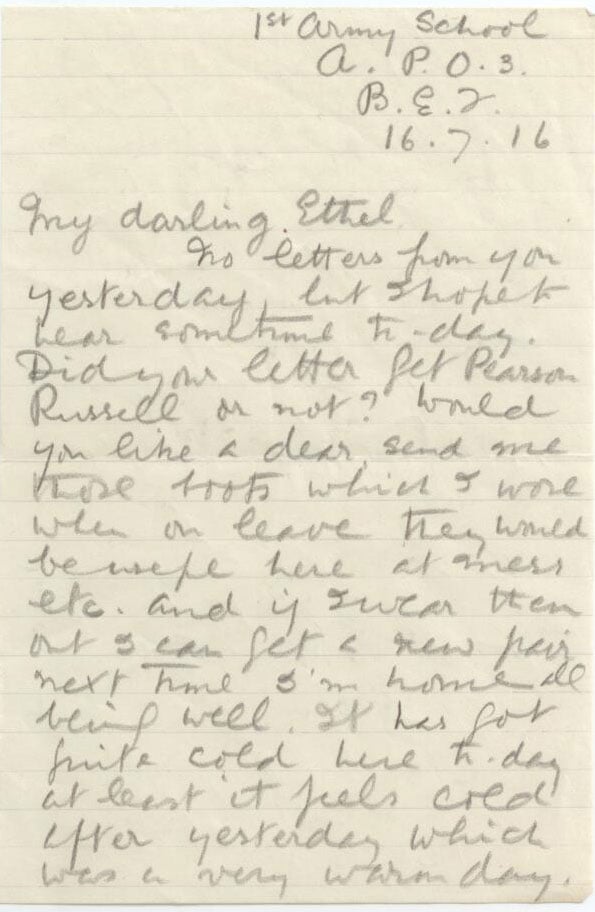 1st Army School
A. P. O. 3.
B. E. F.
16. 7. 16
My darling Ethel
No letters from you
yesterday, but I hope to
hear sometime to-day.
Did your letter get Pearson
Russell or not? Would
you like a dear, send me
those boots which I wore
when on leave they would
be useful here at mess
etc. and if I wear them
out I can get a new pair
next time I'm home all
being well. It has got
quite cold here to-day
at least it feels cold
after yesterday which
was a very warm day.